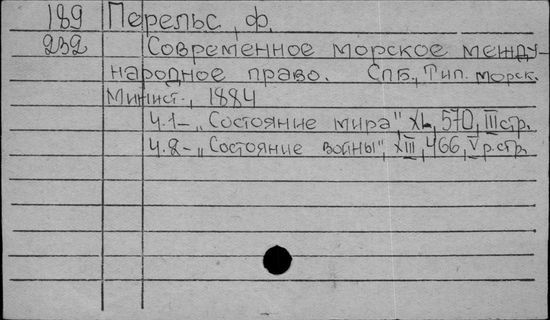 189 Перельс, ф.
232 Современное морское между-
народное право. Спб., Тип. морск.
Минист., 1884
ч.1 - „Состояние мира", XL, 570, III стр.
ч.2 - „Состояние войны", XIII, 466, V р.стр.